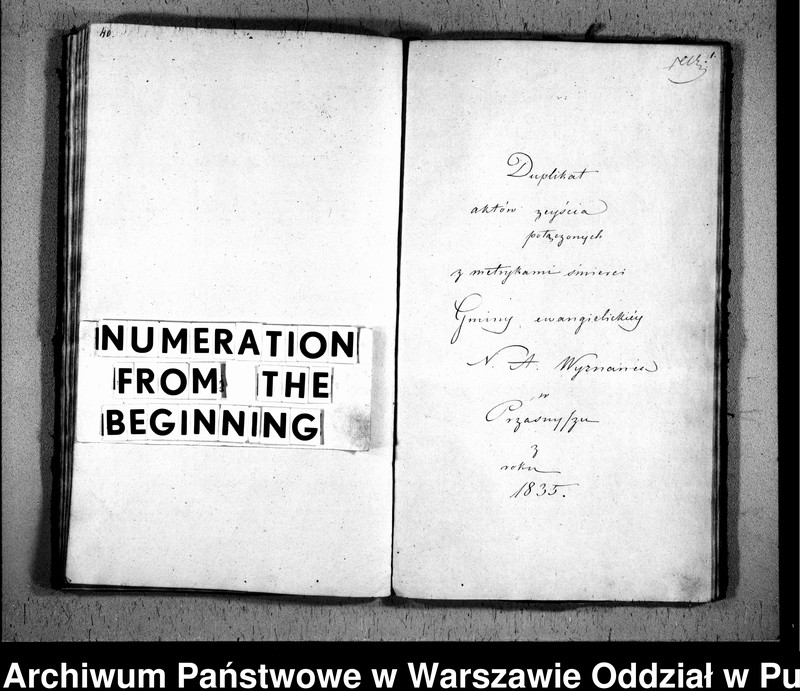 40.
1.
NUMERATION
FROM THE
BEGINNING
Duplikat
aktów zeyścia
połączonych
z metrykami śmierci
Gminy ewangielickiéy
N. A. Wyznania
w
Przasnyszu
z
roku
1835.
Archiwum Państwowe w Warszawie Oddział w Pu